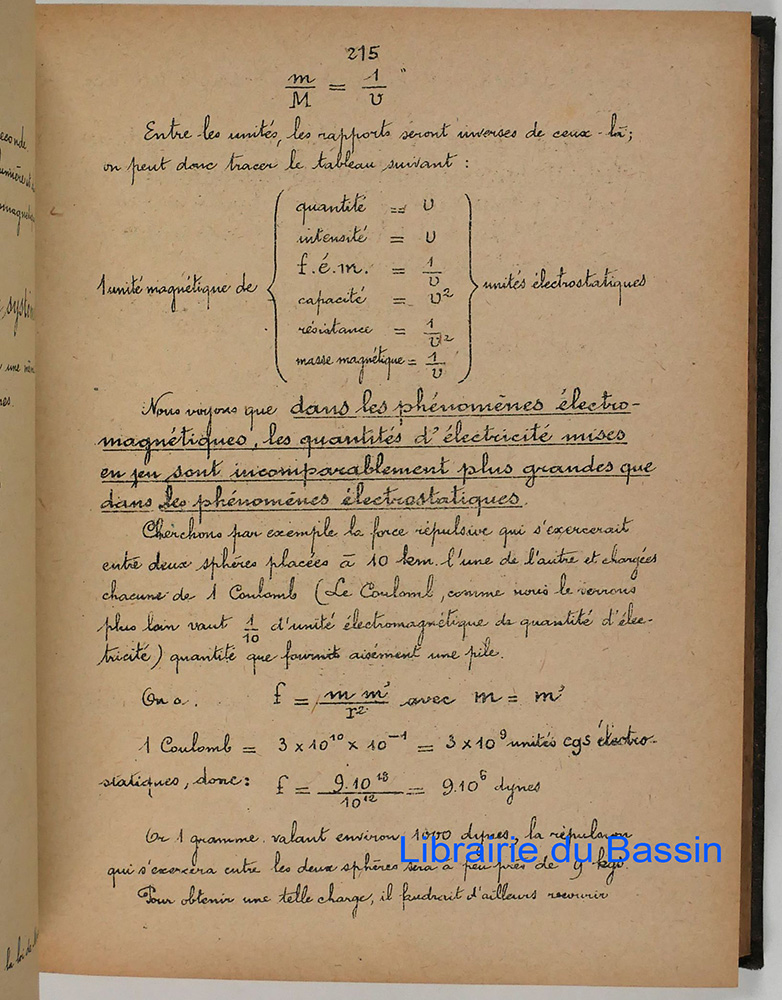 215
m/M = 1/v "
Entre les unités, les rapports seront inverses de ceux-là ;
on peut donc tracer le tableau suivant :
1 unité magnétique de { quantité = v
intensité = v
f.é.m. = 1/v
capacité = v²
résistance = 1/v²
masse magnétique = 1/v } unités électrostatiques
Nous voyons que dans les phénomènes électro-
magnétiques, les quantités d'électricité mises
en jeu sont incomparablement plus grandes que
dans les phénomènes électrostatiques.
Cherchons par exemple la force répulsive qui s'exercerait
entre deux sphères placées à 10 km. l'une de l'autre et chargées
chacune de 1 Coulomb (Le Coulomb, comme nous le verrons
plus loin vaut 1/10 d'unité électromagnétique de quantité d'élec-
tricité) quantité que fournit aisément une pile.
On a. f = m m'/r² avec m = m'
1 Coulomb = 3 x 10¹⁰ x 10⁻¹ = 3 x 10⁹ unités cgs électro-
statiques, donc : f = 9.10¹⁸/10¹² = 9.10⁶ dynes
Or 1 gramme valant environ 1000 dynes, la répulsion
qui s'exercera entre les deux sphères sera à peu près de 9 kgs.
Pour obtenir une telle charge, il faudrait d'ailleurs recourir
Librairie du Bassin